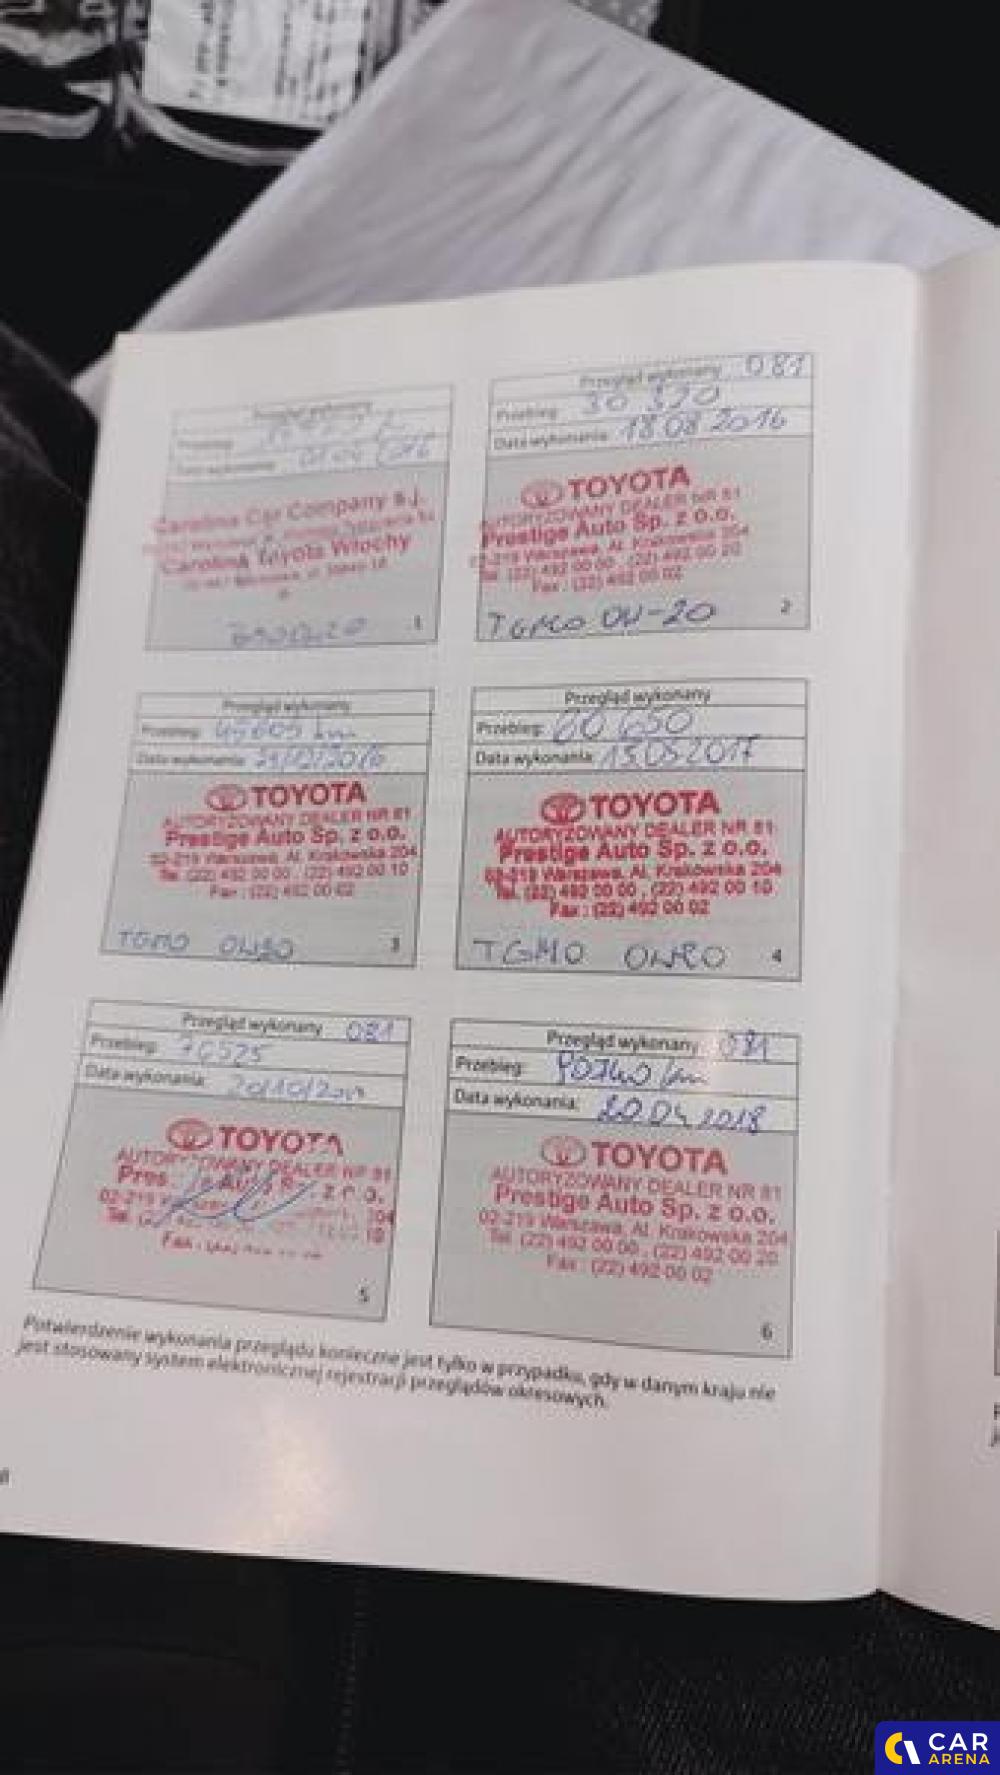 Przegląd wykonany
Przebieg:
Data wykonania: 2016
Carolina Car Company s.j.
Carolina Toyota Włochy
1
Przegląd wykonany 081
Przebieg: 30 320
Data wykonania: 18.08 2016
TOYOTA
AUTORYZOWANY DEALER NR 81
Prestige Auto Sp. z o.o.
02-219 Warszawa, Al. Krakowska 204
Tel. (22) 492 00 00 , (22) 492 00 20
Fax : (22) 492 00 02
TGMO OW-20
2
Przegląd wykonany
Przebieg: 45605 km
Data wykonania: /12/2016
TOYOTA
AUTORYZOWANY DEALER NR 81
Prestige Auto Sp. z o.o.
02-219 Warszawa, Al. Krakowska 204
Tel. (22) 492 00 00 , (22) 492 00 10
Fax : (22) 492 00 02
TGMO
3
Przegląd wykonany
Przebieg: 60 650
Data wykonania: 15.05 2017
TOYOTA
AUTORYZOWANY DEALER NR 81
Prestige Auto Sp. z o.o.
02-219 Warszawa, Al. Krakowska 204
Tel. (22) 492 00 00 , (22) 492 00 10
Fax : (22) 492 00 02
TGMO OW20
4
Przegląd wykonany 081
Przebieg: 76525
Data wykonania: 20/10/2017
TOYOTA
AUTORYZOWANY DEALER NR 81
02-219
Tel.
Fax :
5
Przegląd wykonany 081
Przebieg: km
Data wykonania: 20.04.2018
TOYOTA
AUTORYZOWANY DEALER NR 81
Prestige Auto Sp. z o.o.
02-219 Warszawa, Al. Krakowska 204
Tel. (22) 492 00 00 , (22) 492 00 20
Fax : (22) 492 00 02
6
Potwierdzenie wykonania przeglądu konieczne jest tylko w przypadku, gdy w danym kraju nie
jest stosowany system elektronicznej rejestracji przeglądów okresowych.
CAR
ARENA